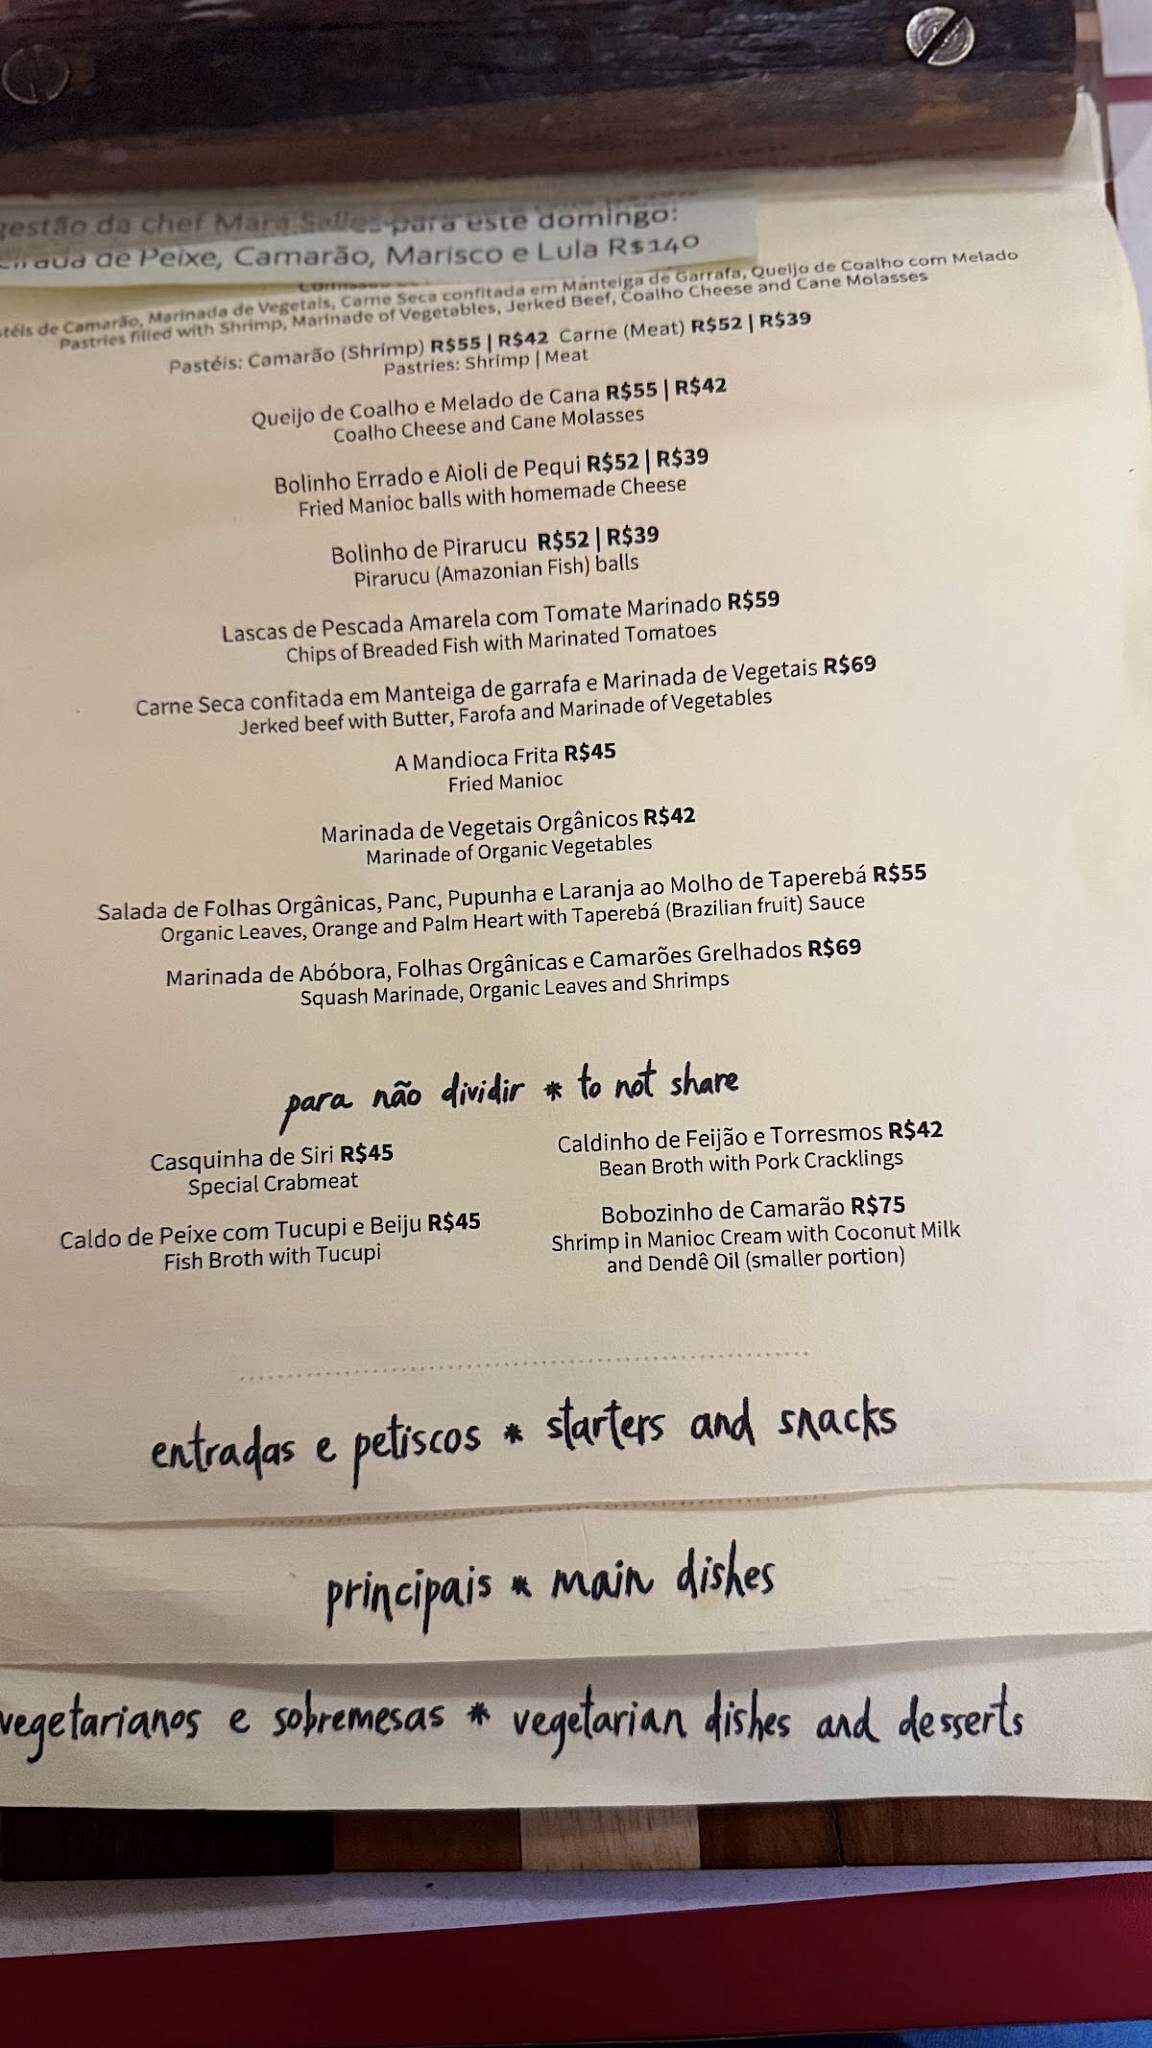 gestão da chef Mara Salles para este domingo:
de Peixe, Camarão, Marisco e Lula R$140
téis de Camarão, Marinada de Vegetais, Carne Seca confitada em Manteiga de Garrafa, Queijo de Coalho com Melado
Pastries filled with Shrimp, Marinade of Vegetables, Jerked Beef, Coalho Cheese and Cane Molasses
Pastéis: Camarão (Shrimp) R$55 | R$42 Carne (Meat) R$52 | R$39
Pastries: Shrimp | Meat
Queijo de Coalho e Melado de Cana R$55 | R$42
Coalho Cheese and Cane Molasses
Bolinho Errado e Aioli de Pequi R$52 | R$39
Fried Manioc balls with homemade Cheese
Bolinho de Pirarucu R$52 | R$39
Pirarucu (Amazonian Fish) balls
Lascas de Pescada Amarela com Tomate Marinado R$59
Chips of Breaded Fish with Marinated Tomatoes
Carne Seca confitada em Manteiga de garrafa e Marinada de Vegetais R$69
Jerked beef with Butter, Farofa and Marinade of Vegetables
A Mandioca Frita R$45
Fried Manioc
Marinada de Vegetais Orgânicos R$42
Marinade of Organic Vegetables
Salada de Folhas Orgânicas, Panc, Pupunha e Laranja ao Molho de Taperebá R$55
Organic Leaves, Orange and Palm Heart with Taperebá (Brazilian fruit) Sauce
Marinada de Abóbora, Folhas Orgânicas e Camarões Grelhados R$69
Squash Marinade, Organic Leaves and Shrimps
para não dividir * to not share
Casquinha de Siri R$45
Special Crabmeat
Caldo de Peixe com Tucupi e Beiju R$45
Fish Broth with Tucupi
Caldinho de Feijão e Torresmos R$42
Bean Broth with Pork Cracklings
Bobozinho de Camarão R$75
Shrimp in Manioc Cream with Coconut Milk
and Dendê Oil (smaller portion)
entradas e petiscos * starters and snacks
principais * main dishes
vegetarianos e sobremesas * vegetarian dishes and desserts